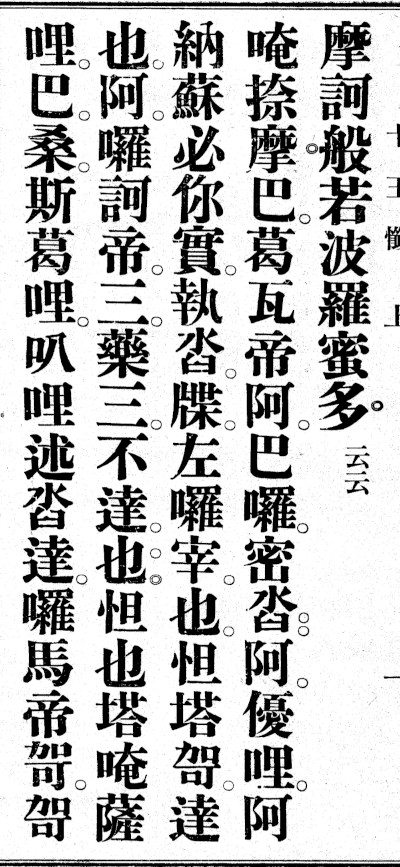 十王懺上 一
摩訶般若波羅蜜多。云云
唵捺摩巴葛瓦帝阿巴囉密沓阿優哩阿
納蘇必你實執沓牒左囉宰也怛塔哿達
也阿囉訶帝三藥三不達也怛也塔唵薩
哩巴桑斯葛哩叭哩述沓達囉馬帝哿哿